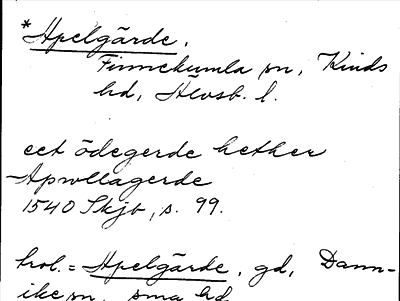 *Apelgärde.
Finnekumla sn, Kinds
hd, Älvsb. l.
eet ödegerde hether
Apwllagerde
1540 Skjb, s. 99.
trol. = Apelgärde, gd, Dann-
ike sn, sma hd